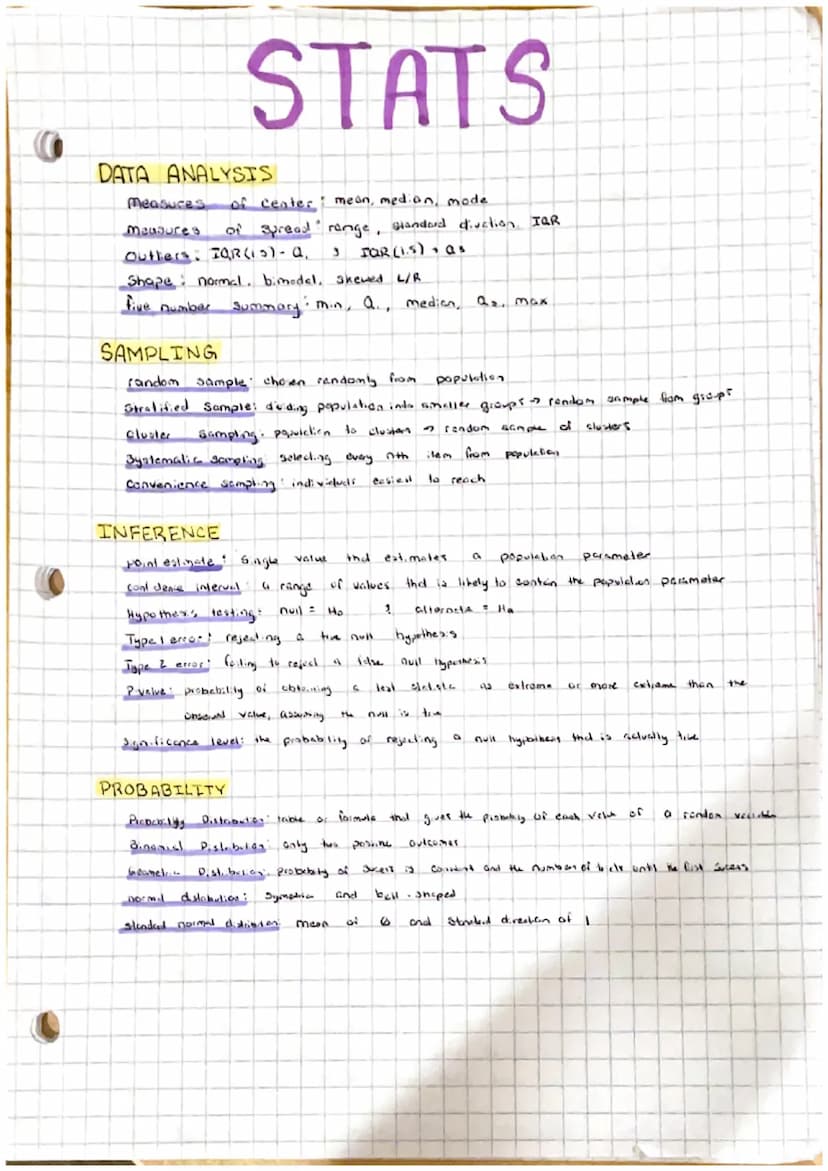 STATS
DATA ANALYSIS
Measures of center: mean, median, mode
measures of spread: range, standard diviation IQR
Outliers: IQR(1.5) - Q₁ & IQR(1.5) + Q₃
Shape: normal, bimodel, skewed L/R
five number summary: min, Q₁, median, Q₃, max
SAMPLING
random sample: chosen randomly from population
Stratified sample: dividing population into smaller groups → random sample from groups
Cluster sampling: population to clusters → random sample of clusters
Systematic sampling: selecting every nth item from population
Convenience sampling: individuals easiest to reach
INFERENCE
point estimate: single value that estimates a population parameter
confidence interval: a range of values that is likely to contain the population parameter
Hypothesis testing: null = H₀ & alternate = Ha
Type 1 error: rejecting a true null hypothesis
Type 2 error: failing to reject a false null hypothesis
P-value: probability of obtaining a test statistic as extreme or more extreme than the
value, assuming the null is true
Significance level: the probability of rejecting a null hypothesis that is actually true
PROBABILITY
Probability Distribution: table or formula that gives the probability of each value of a random variable
Binomial Distribution: only two possible outcomes
Geometric Distribution: probability of success is constant and the number of trials until the first success
normal distribution: symmetric and bell-shaped
standard normal distribution: mean of 0 and standard of 1